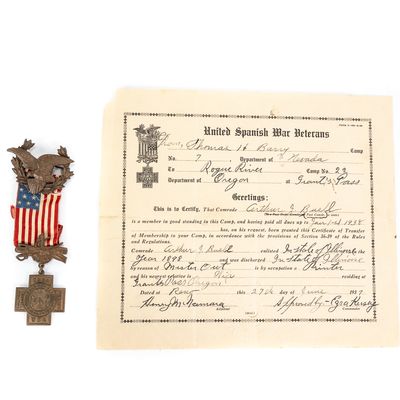 United Spanish War Veterans
From Thomas H Barry Camp
No. 7 Department of Nevada
To Rogue River Camp No. 22
Department of Oregon at Grants Pass
Greetings:
This is to Certify, That Comrade Arthur
is a member in good standing in this Camp, and having paid all dues up to Jan 1st 1938
has, on his request, been granted this Certificate of Transfer
of Membership to your Camp, in accordance with the provisions of Section of the Rules
and Regulations.
Comrade Arthur enlisted In State of Illinois
Year 1898 and was discharged In State of Illinois
by reason of Muster Out by occupation a Printer
and his nearest relative is Wife residing at
Grants Pass Oregon
Dated at Reno this 27th day of June 1937
Henry McNamara Approved - Ezra
Adjutant Commander